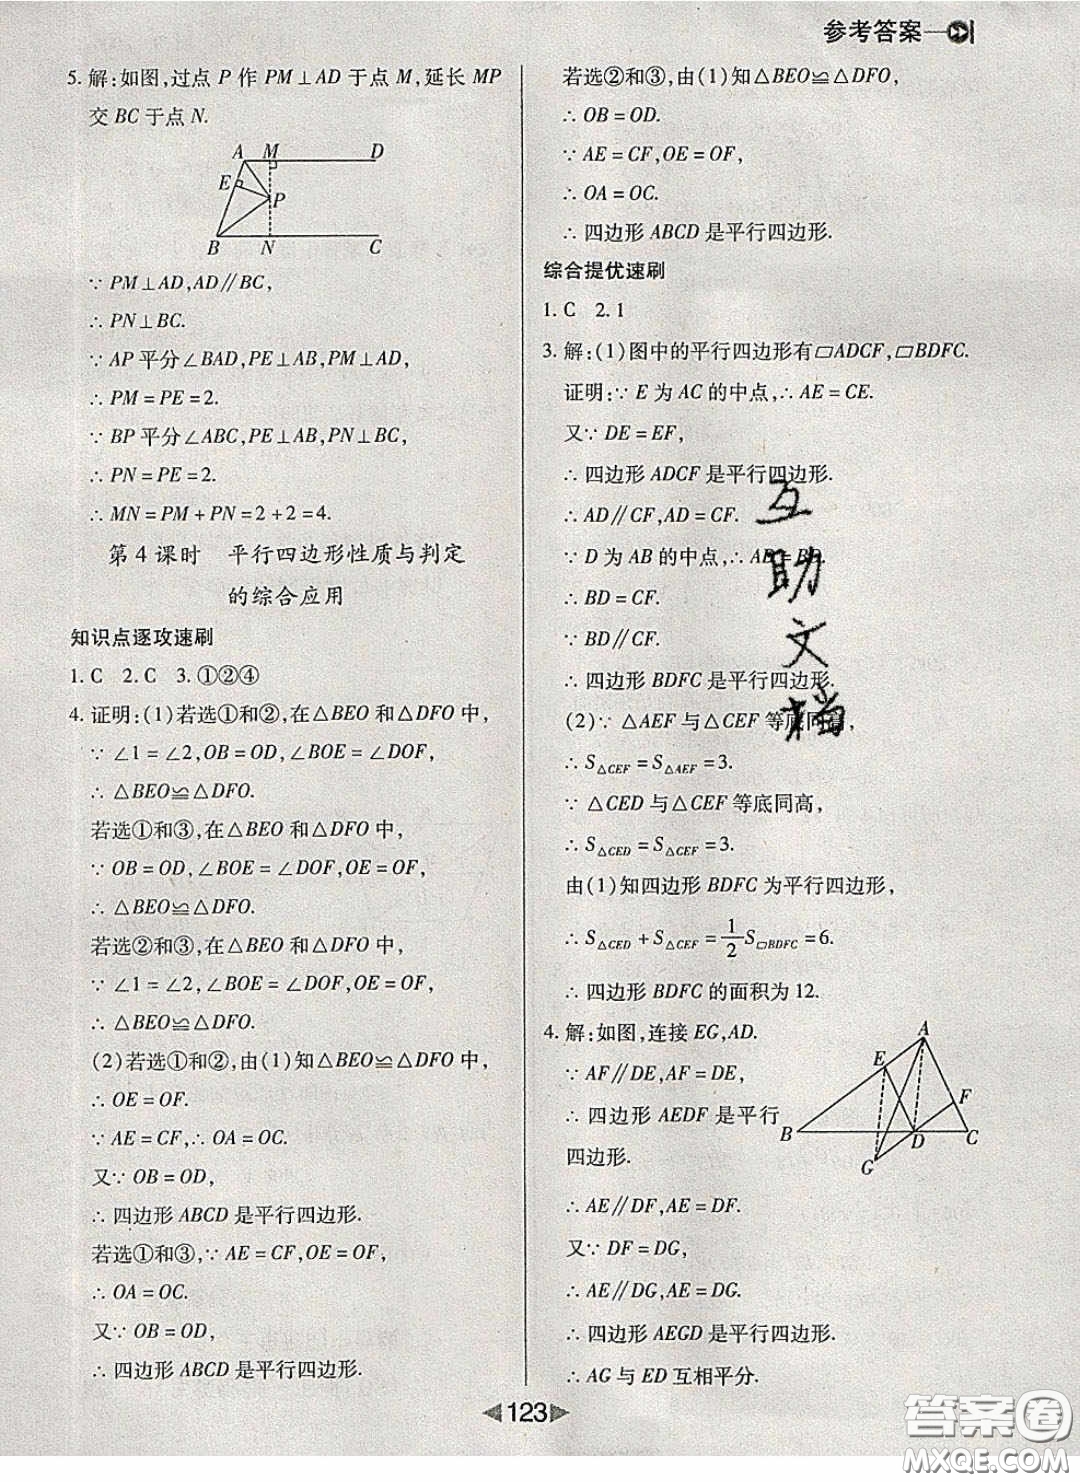 参考答案
5. 解:如图,过点 P 作 PM⊥AD 于点 M,延长 MP
交 BC 于点 N.
A M D
E
P
B N C
∵ PM⊥AD,AD∥BC,
∴ PN⊥BC.
∵ AP 平分∠BAD,PE⊥AB,PM⊥AD,
∴ PM=PE=2.
∵ BP 平分∠ABC,PE⊥AB,PN⊥BC,
∴ PN=PE=2.
∴ MN=PM+PN=2+2=4.
第 4 课时 平行四边形性质与判定
的综合应用
知识点逐攻速刷
1. C 2. C 3. ①②④
4. 证明:(1)若选①和②,在△BEO 和△DFO 中,
∵ ∠1=∠2,OB=OD,∠BOE=∠DOF,
∴ △BEO≌△DFO.
若选①和③,在△BEO 和△DFO 中,
∵ OB=OD,∠BOE=∠DOF,OE=OF,
∴ △BEO≌△DFO.
若选②和③,在△BEO 和△DFO 中,
∵ ∠1=∠2,∠BOE=∠DOF,OE=OF,
∴ △BEO≌△DFO.
(2)若选①和②,由(1)知△BEO≌△DFO 中,
∴ OE=OF.
∵ AE=CF,∴ OA=OC.
又∵ OB=OD,
∴ 四边形 ABCD 是平行四边形.
若选①和③,∵ AE=CF,OE=OF,
∴ OA=OC.
又∵ OB=OD,
∴ 四边形 ABCD 是平行四边形.
若选②和③,由(1)知△BEO≌△DFO,
∴ OB=OD.
∵ AE=CF,OE=OF,
∴ OA=OC.
∴ 四边形 ABCD 是平行四边形.
综合提优速刷
1. C 2. 1
3. 解:(1)图中的平行四边形有▱ADCF,▱BDFC.
证明:∵ E 为 AC 的中点,∴ AE=CE.
又∵ DE=EF,
∴ 四边形 ADCF 是平行四边形.
∴ AD∥CF,AD=CF.
∵ D 为 AB 的中点,∴ AD=BD.
∴ BD=CF.
∵ BD∥CF.
∴ 四边形 BDFC 是平行四边形.
(2)∵ △AEF 与△CEF 等底同高,
∴ S△CEF=S△AEF=3.
∵ △CED 与△CEF 等底同高,
∴ S△CED=S△CEF=3.
由(1)知四边形 BDFC 为平行四边形,
∴ S△CED+S△CEF=1/2 S▱BDFC=6.
∴ 四边形 BDFC 的面积为 12.
4. 解:如图,连接 EG,AD.
∵ AF∥DE,AF=DE,
∴ 四边形 AEDF 是平行
四边形.
A
E
F
B D C
G
∴ AE∥DF,AE=DF.
又∵ DF=DG,
∴ AE∥DG,AE=DG.
∴ 四边形 AEGD 是平行四边形.
∴ AG 与 ED 互相平分.
互
助
文
档
123
答案圈
MXQE.COM